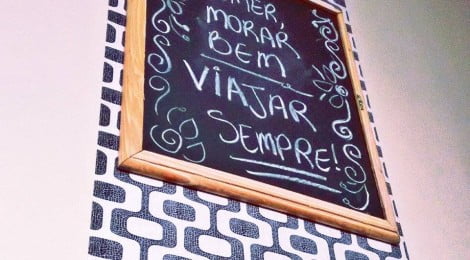 MORAR,
BEM
VIAJAR
SEMPRE!